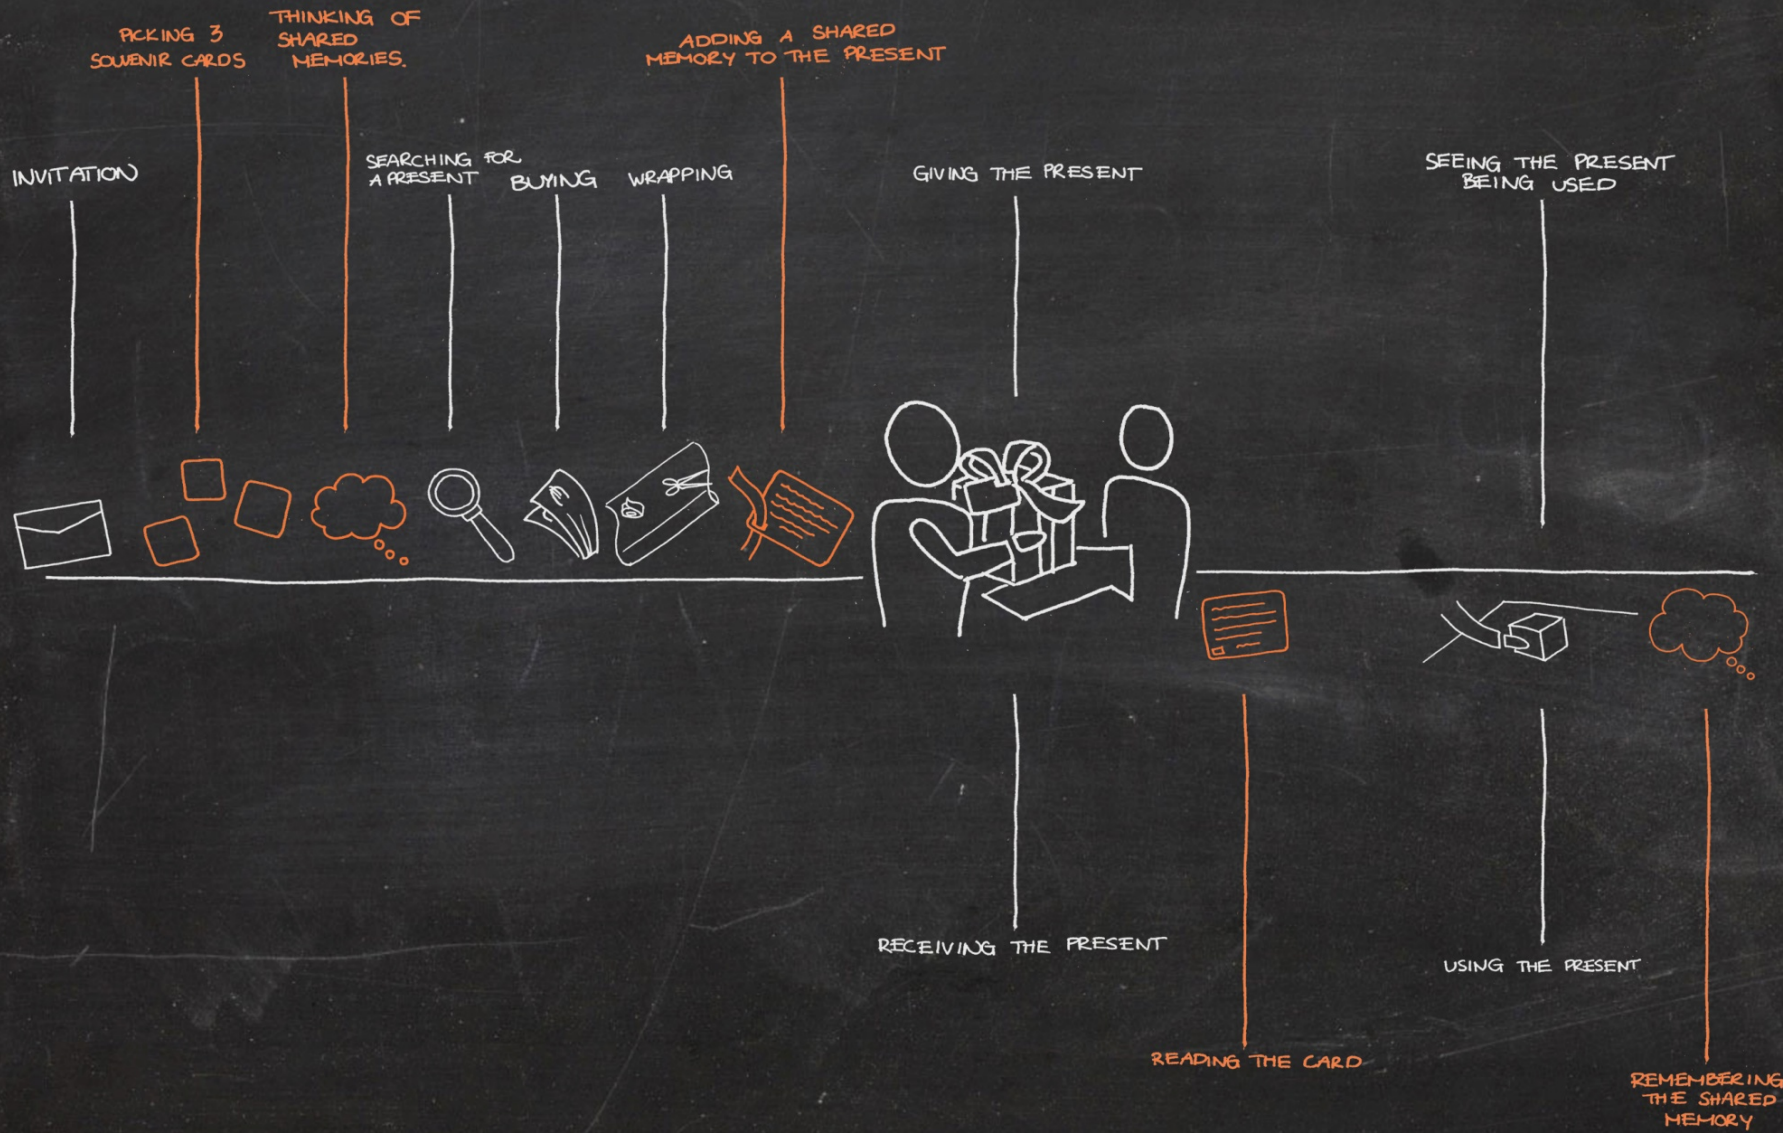 PICKING 3
SOUVENIR CARDS
THINKING OF
SHARED
MEMORIES.
ADDING A SHARED
MEMORY TO THE PRESENT
INVITATION
SEARCHING FOR
A PRESENT
BUYING
WRAPPING
GIVING THE PRESENT
SEEING THE PRESENT
BEING USED
RECEIVING THE PRESENT
USING THE PRESENT
READING THE CARD
REMEMBERING
THE SHARED
MEMORY